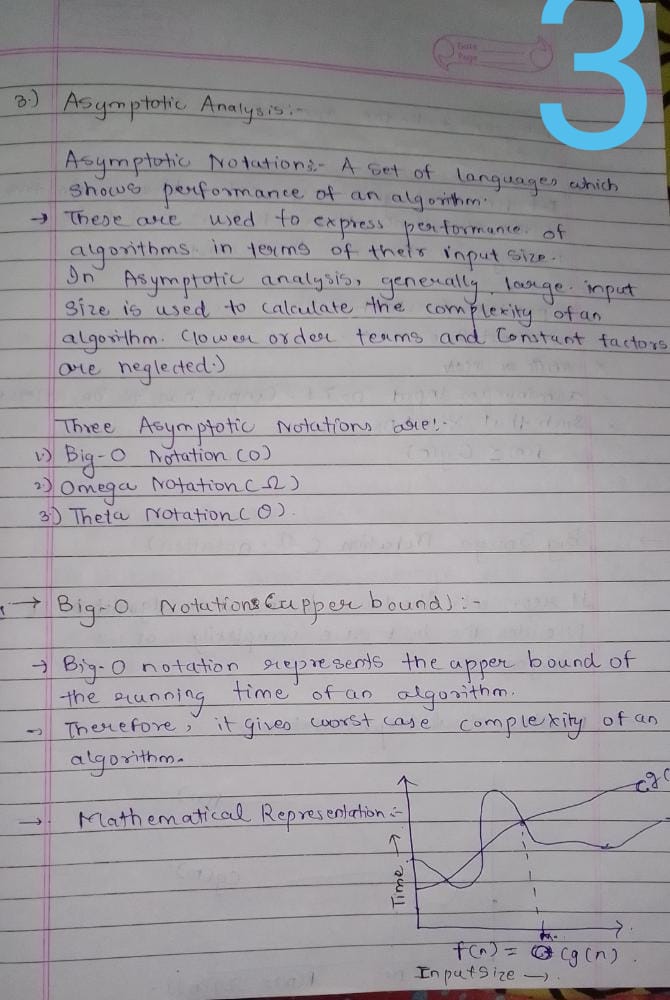 3
Date
Page
3.) Asymptotic Analysis:-
Asymptotic Notations:- A set of languages which
shows performance of an algorithm.
→ These are used to express performance of
algorithms in terms of their input size.
In Asymptotic analysis, generally large input
size is used to calculate the complexity of an
algorithm. (lower order terms and Constant factors
are neglected.)
Three Asymptotic Notations are:-
1.) Big-O Notation (O)
2.) Omega Notation (Ω)
3.) Theta Notation (θ).
→ Big-O Notations (upper bound) :-
→ Big-O notation represents the upper bound of
the running time of an algorithm.
→ Therefore, it gives worst case complexity of an
algorithm.
→ Mathematical Representation:-
cg(
Time →
f(n) = cg(n)
Input size →